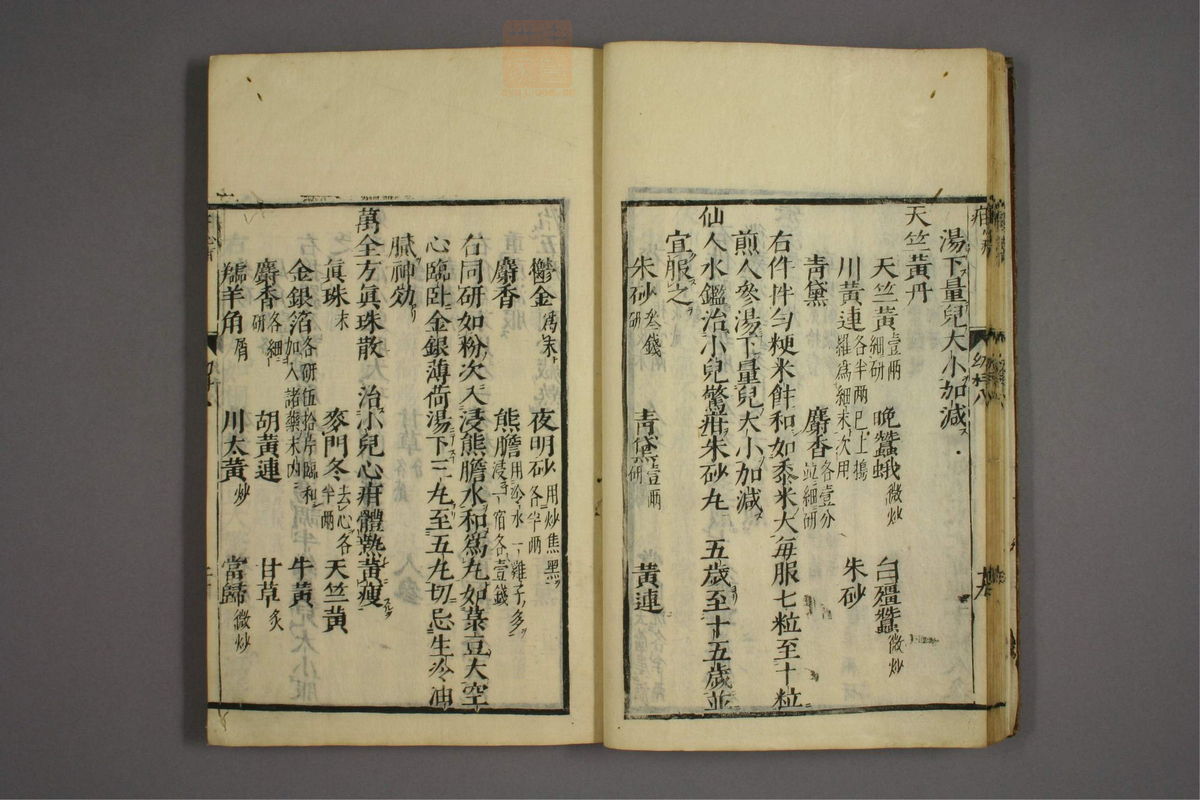 湯下量兒大小加減
天竺黃丹
天竺黃壹兩細研 晚蠶蛾微炒 白殭蠶微炒
川黃連各半兩已上搗羅爲細末次用 朱砂
青黛 麝香各壹分並細研
右件拌勻粳米飰和如黍米大每服七粒至十粒
煎人參湯下量兒大小加減
仙人水鑑治小兒驚疳朱砂丸 五歲至十五歲並
宜服之
朱砂研叁錢 青黛壹兩研 黃連
鬱金爲末 夜明砂用炒焦黑各半兩
麝香 熊膽用冷水一雞子多浸一宿各壹錢
右同研如粉次入浸熊膽水和爲丸如菉豆大空
心臨臥金銀薄荷湯下三丸至五丸切忌生冷油
膩神効
萬全方眞珠散 治小兒心疳體熱黃瘦
眞珠末 麥門冬去心各半兩 天竺黃
金銀箔各研伍拾片臨和加入諸藥末內 牛黃
麝香各細研 胡黃連 甘草炙
羚羊角屑 川大黃炒 當歸微炒